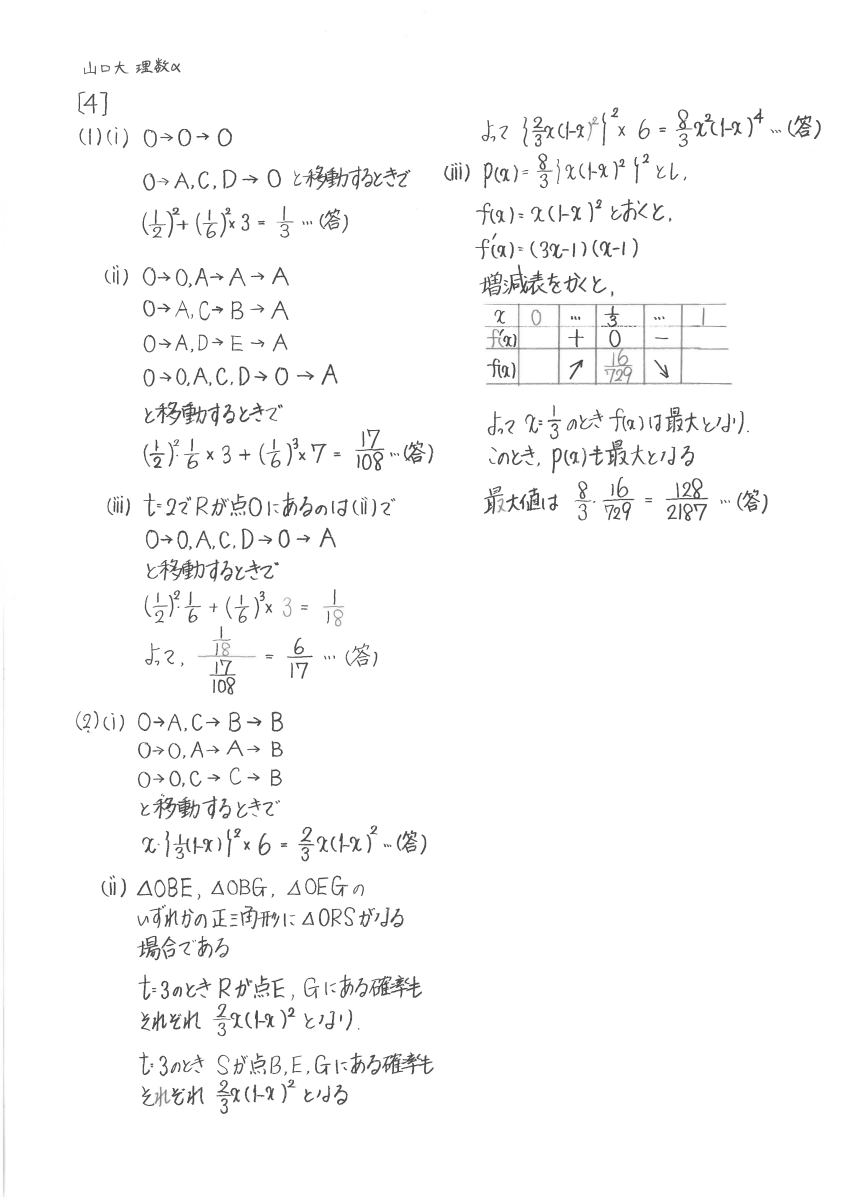 山口大 理数α
[4]
(1)(i) O→O→O
O→A,C,D→O と移動するときで
(1/2)²+(1/6)²×3 = 1/3 …(答)
(ii) O→O,A→A→A
O→A,C→B→A
O→A,D→E→A
O→O,A,C,D→O→A
と移動するときで
(1/2)²・1/6×3+(1/6)³×7 = 17/108 …(答)
(iii) t=2でRが点Oにあるのは(ii)で
O→O,A,C,D→O→A
と移動するときで
(1/2)²・1/6+(1/6)³×3 = 1/18
よって, (1/18)/(17/108) = 6/17 …(答)
(2)(i) O→A,C→B→B
O→O,A→A→B
O→O,C→C→B
と移動するときで
x・{1/3(1-x)}²×6 = 2/3x(1-x)² …(答)
(ii) △OBE, △OBG, △OEGの
いずれかの正三角形に△ORSがなる
場合である
t=3のときRが点E, Gにある確率も
それぞれ 2/3x(1-x)² となり.
t=3のとき Sが点B,E,Gにある確率も
それぞれ 2/3x(1-x)² となる
よって {2/3x(1-x)²}²×6 = 8/3x²(1-x)⁴ …(答)
(iii) P(x)=8/3{x(1-x)²}²とし,
f(x)=x(1-x)²とおくと,
f'(x)=(3x-1)(x-1)
増減表をかくと,
x 0 … 1/3 … 1
f'(x) + 0 −
f(x) ↗ 16/729 ↘
よって x=1/3のとき f(x)は最大となり.
このとき, P(x)も最大となる
最大値は 8/3・16/729 = 128/2187 …(答)